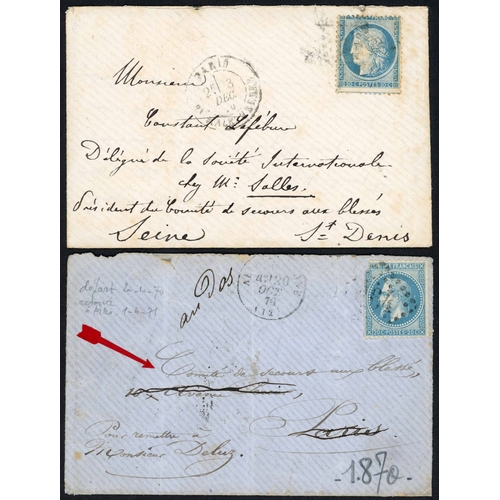 PARIS
2E 3
DEC.
20 C. POSTES 20 C.
Monsieur
Constant Lefébure
Délégué de la Société Internationale
chez Mr. Salles.
Président du Comité de secours aux blessés
Seine St Denis
départ
retour
1-4-71
au Dos
20
OCT.
70
FRANÇAIS
20 C. POSTES 20 C.
Comité de secours aux blessés,
Avenue
Paris
Pour remettre à
Monsieur Deluz
-1870-